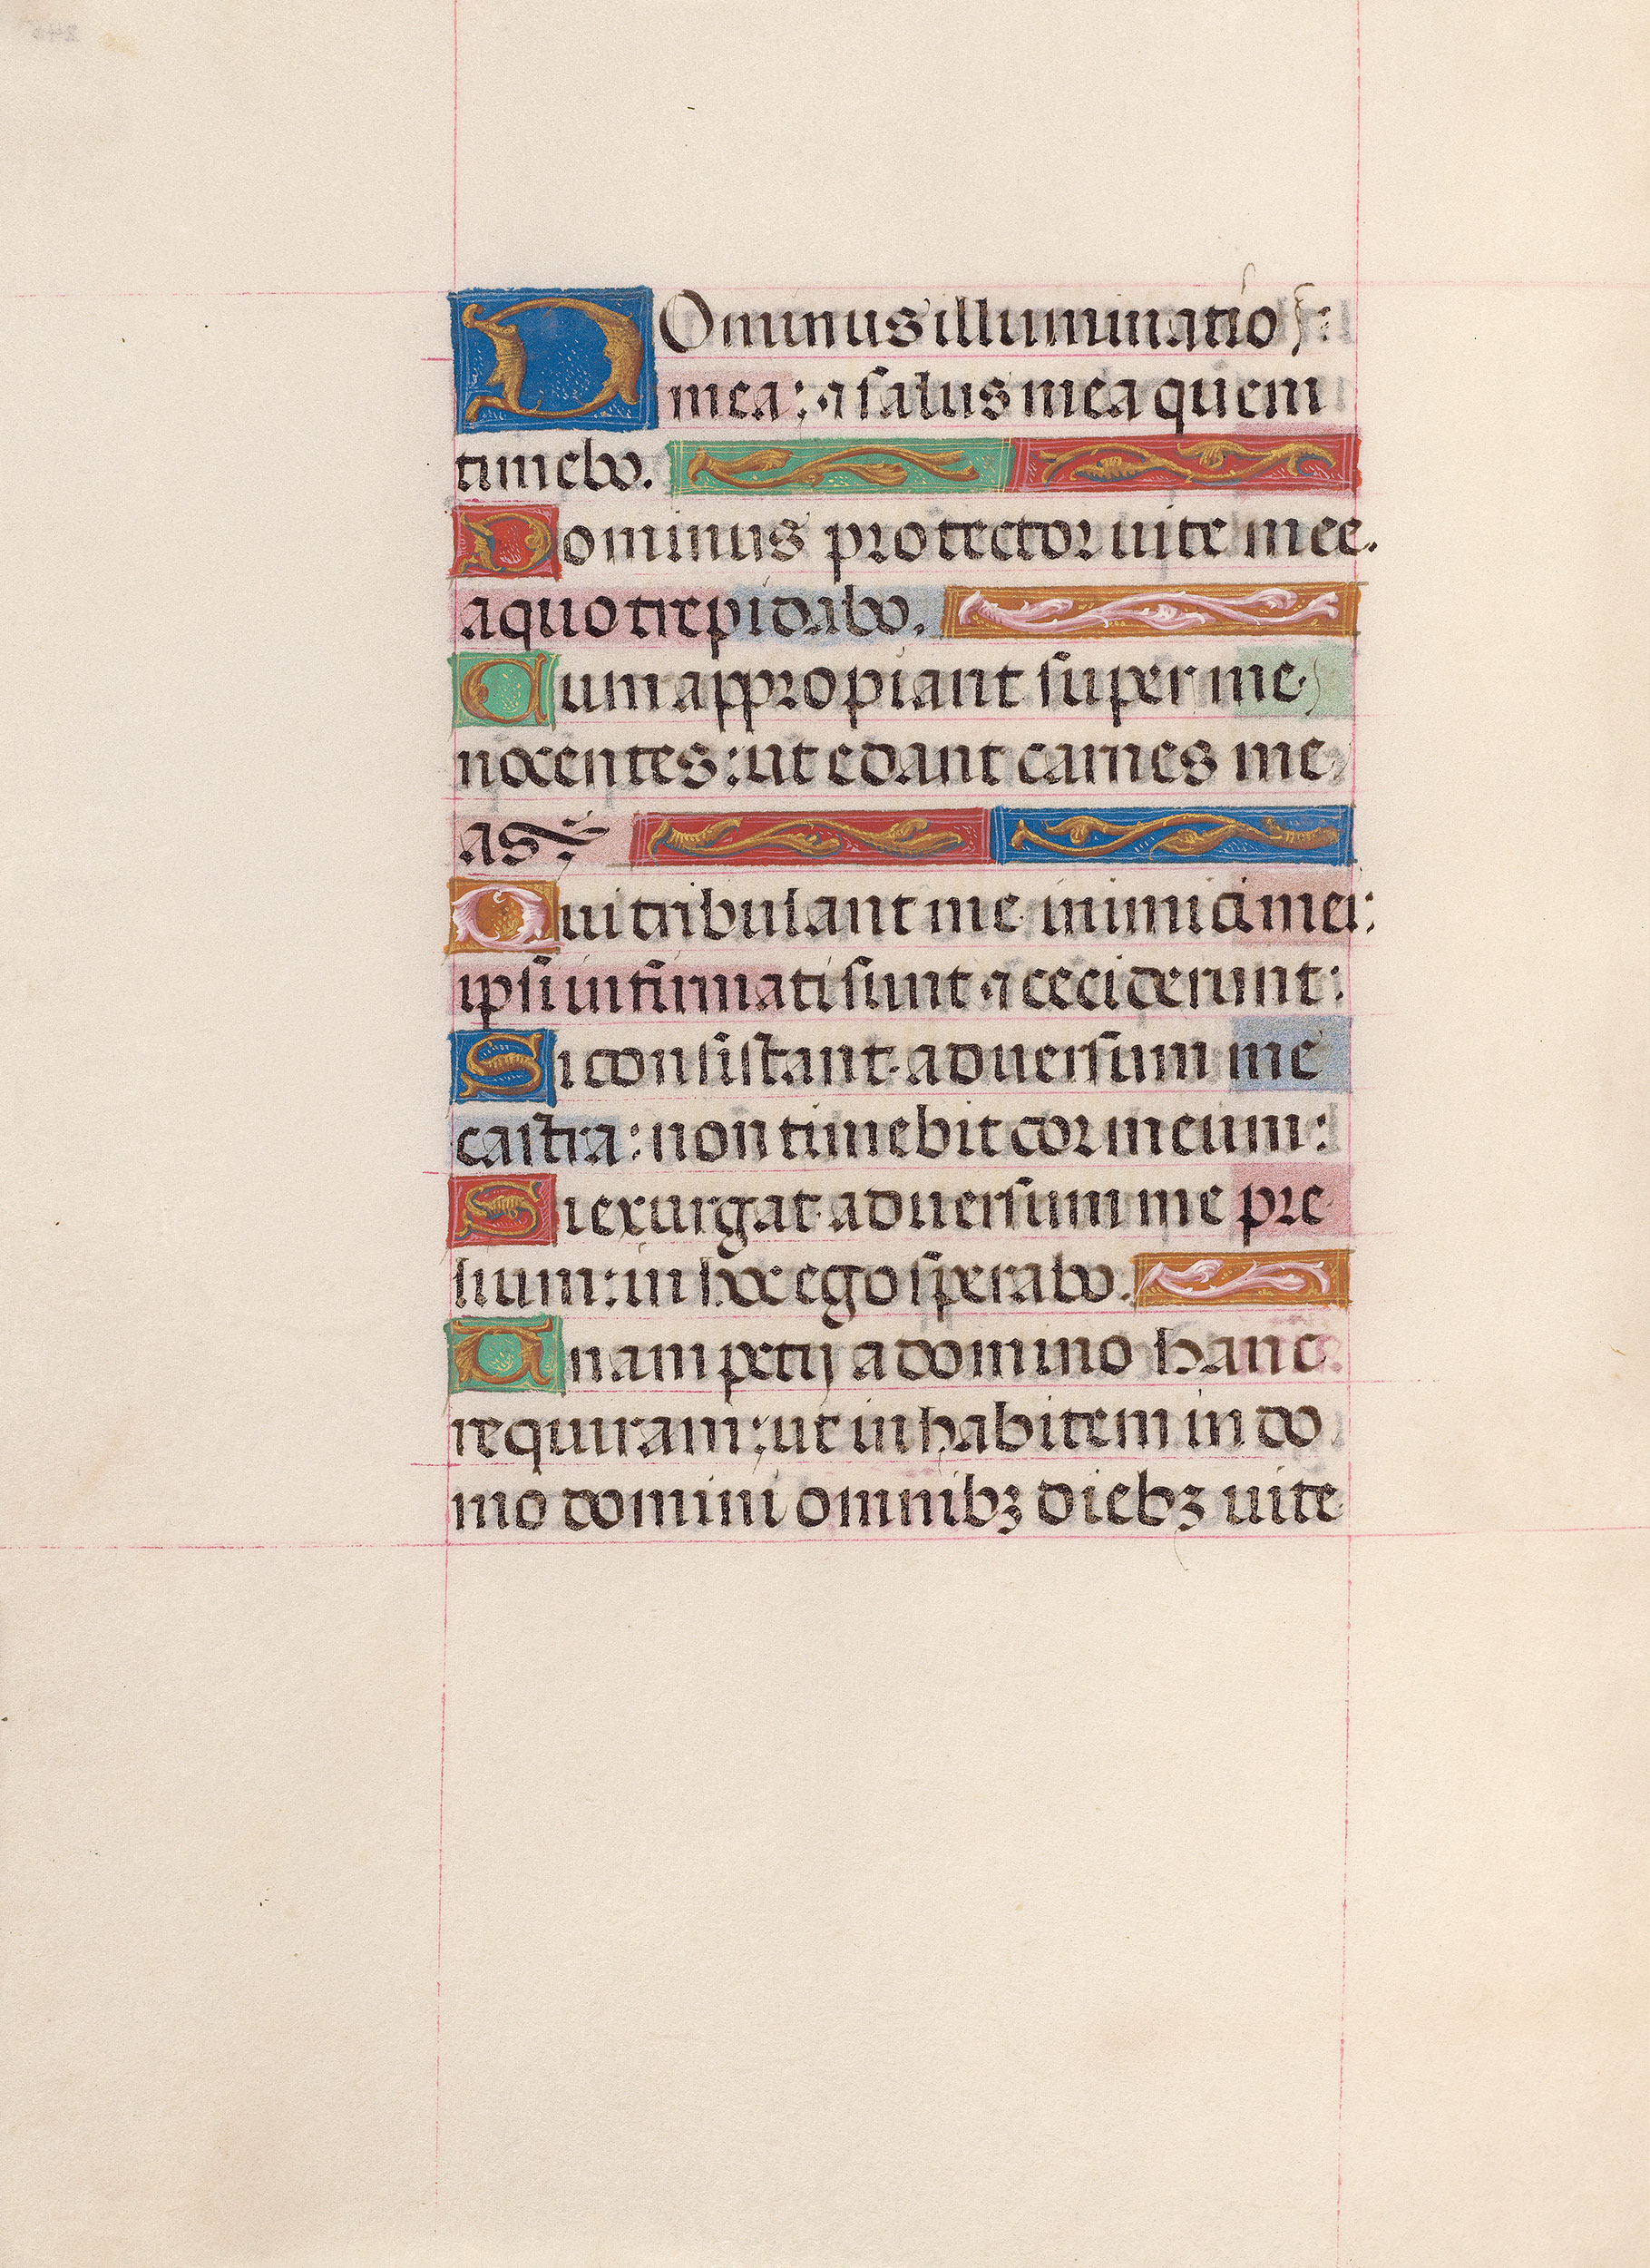 DOminus illuminatio
mea: ⁊ salus mea quem
timebo.
Dominus protector uite mee.
a quo trepidabo.
Cum appropiant super me
nocentes: ut edant carnes me
as
Qui tribulant me inimici mei:
ipsi infirmati sunt ⁊ ceciderunt:
Si consistant aduersum me
castra: non timebit cor meum:
Si exurgat aduersum me pre
lium: in hoc ego sperabo.
Unam petij a domino hanc
requiram: ut inhabitem in do
mo domini omnibꝫ diebꝫ uite